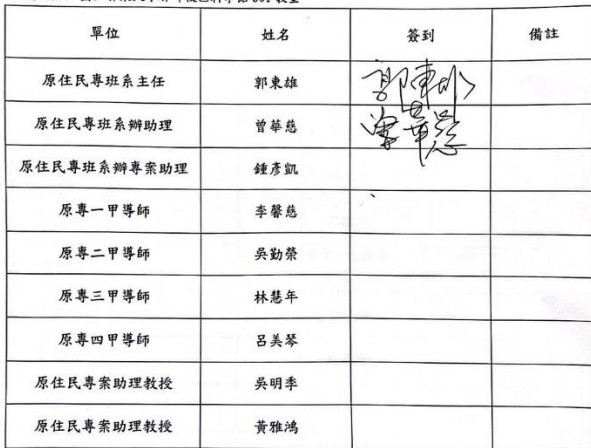 單位 姓名 簽到 備註
原住民專班系主任 郭東雄 郭東雄
原住民專班系辦助理 曾華慈 曾華慈
原住民專班系辦專案助理 鍾彥凱
原專一甲導師 李馨慈
原專二甲導師 吳勤榮
原專三甲導師 林慧年
原專四甲導師 呂美琴
原住民專案助理教授 吳明季
原住民專案助理教授 黃雅鴻